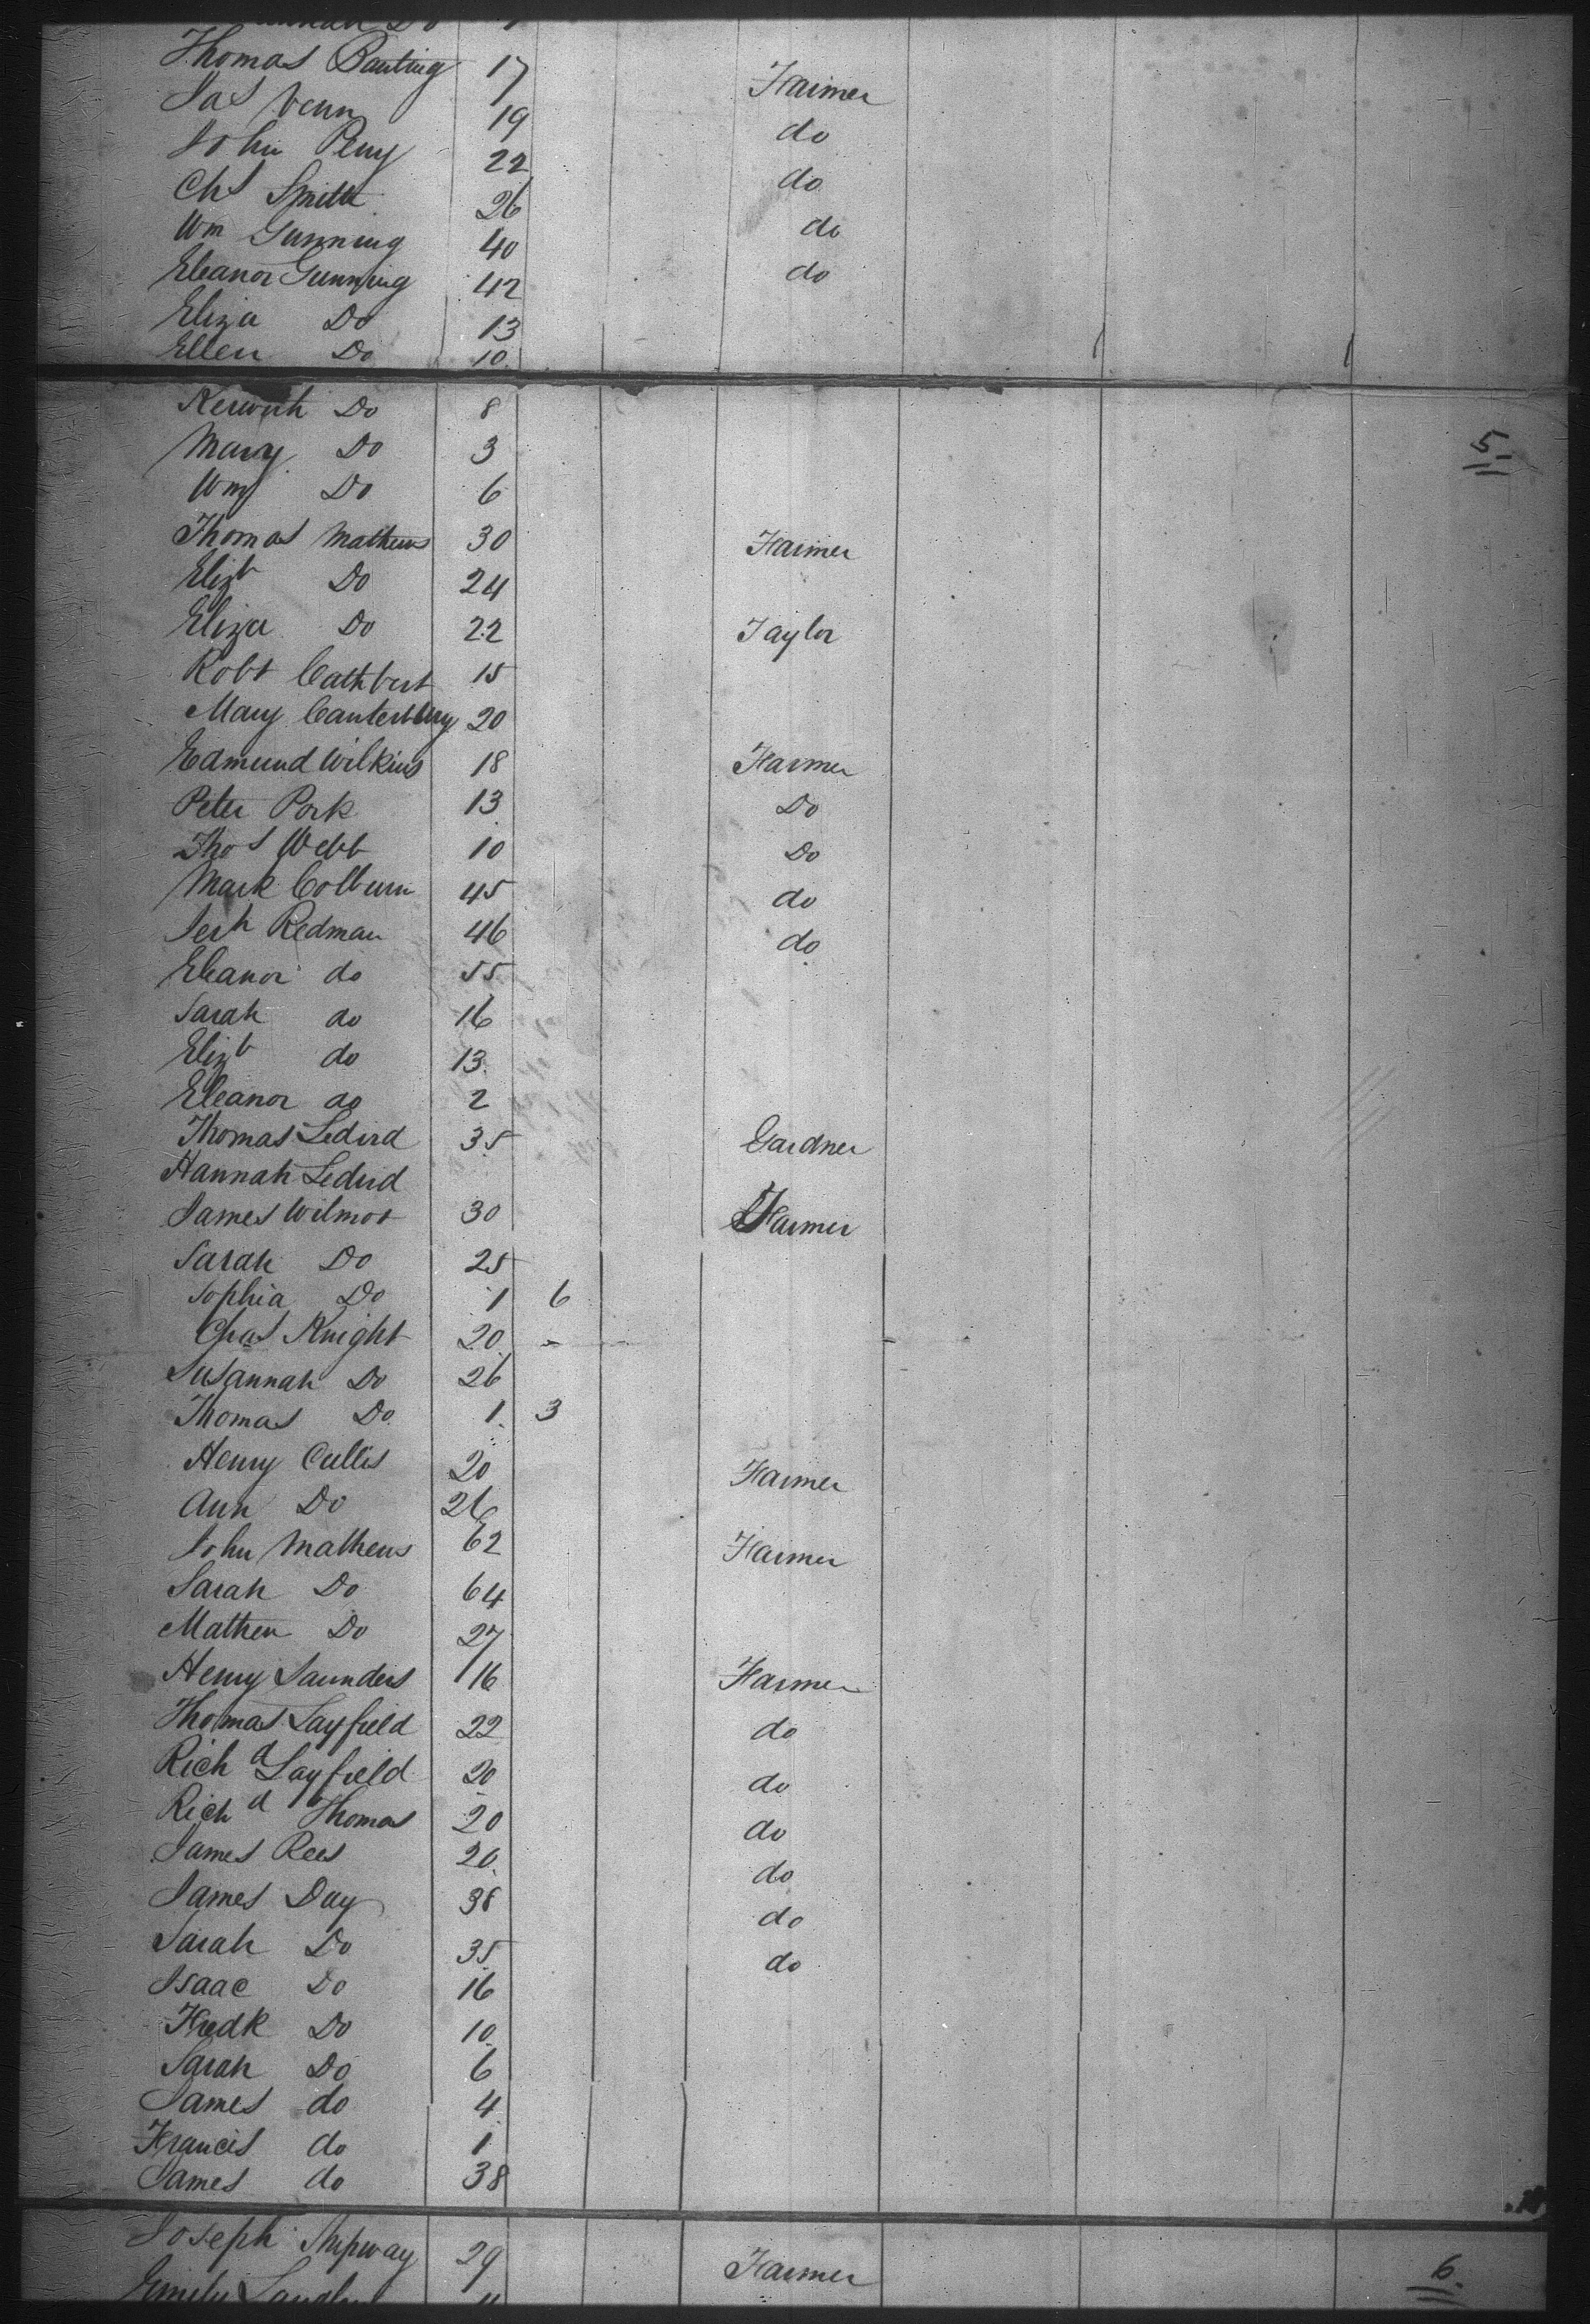 Thomas Banting 17 Farmer
Jas Venn 19 do
John Peny 22 do
Chs Smith 26 do
Wm Gunning 40 do
Eleanor Gunning 42
Eliza Do 13
Ellen Do 10
Do 8
5.
Mary Do 3
Wm Do 6
Thomas Mathews 30 Farmer
Elizt Do 24
Eliza Do 22 Taylor
Robt Cathbert 15
Mary Canterbury 20
Edmund Wilkins 18 Farmer
Peter Pork 13 Do
Thos Webb 10 Do
Mark Colburn 45 do
Jerh Redman 46 do
Eleanor do 55
Sarah do 16
Elizt do 13
Eleanor do 2
Thomas Ledird 35 Gardner
Hannah Ledird
James Wilmot 30 Farmer
Sarah Do 25
Sophia Do 1 6
Chas Knight 20 -
Susannah Do 26
Thomas Do 1 3
Henry Cullis 20 Farmer
Ann Do 26
John Mathews 62 Farmer
Sarah Do 64
Mathew Do 27
Henry Saunders 16 Farmer
Thomas Layfield 22 do
Richd Layfield 20 do
Richd Thomas 20 do
James Rees 20 do
James Day 38 do
Sarah Do 35 do
Isaac Do 16
Fredk Do 10
Sarah Do 6
James do 4
Francis do 1
James do 38
Joseph Shipway 29 Farmer 6.
Emily